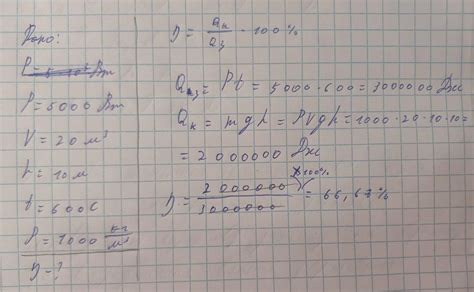 Дано:
P = 5 · 10³ Вт
P = 5000 Вт
V = 20 м³
h = 10 м
t = 600 с
ρ = 1000 кг/м³
η - ?
η = Qк/Qз · 100%
Qз = Pt = 5000 · 600 = 3000000 Дж
Qк = mgh = ρVgh = 1000 · 20 · 10 · 10 =
= 2000000 Дж
η = 2000000/3000000 × 100% = 66,67%